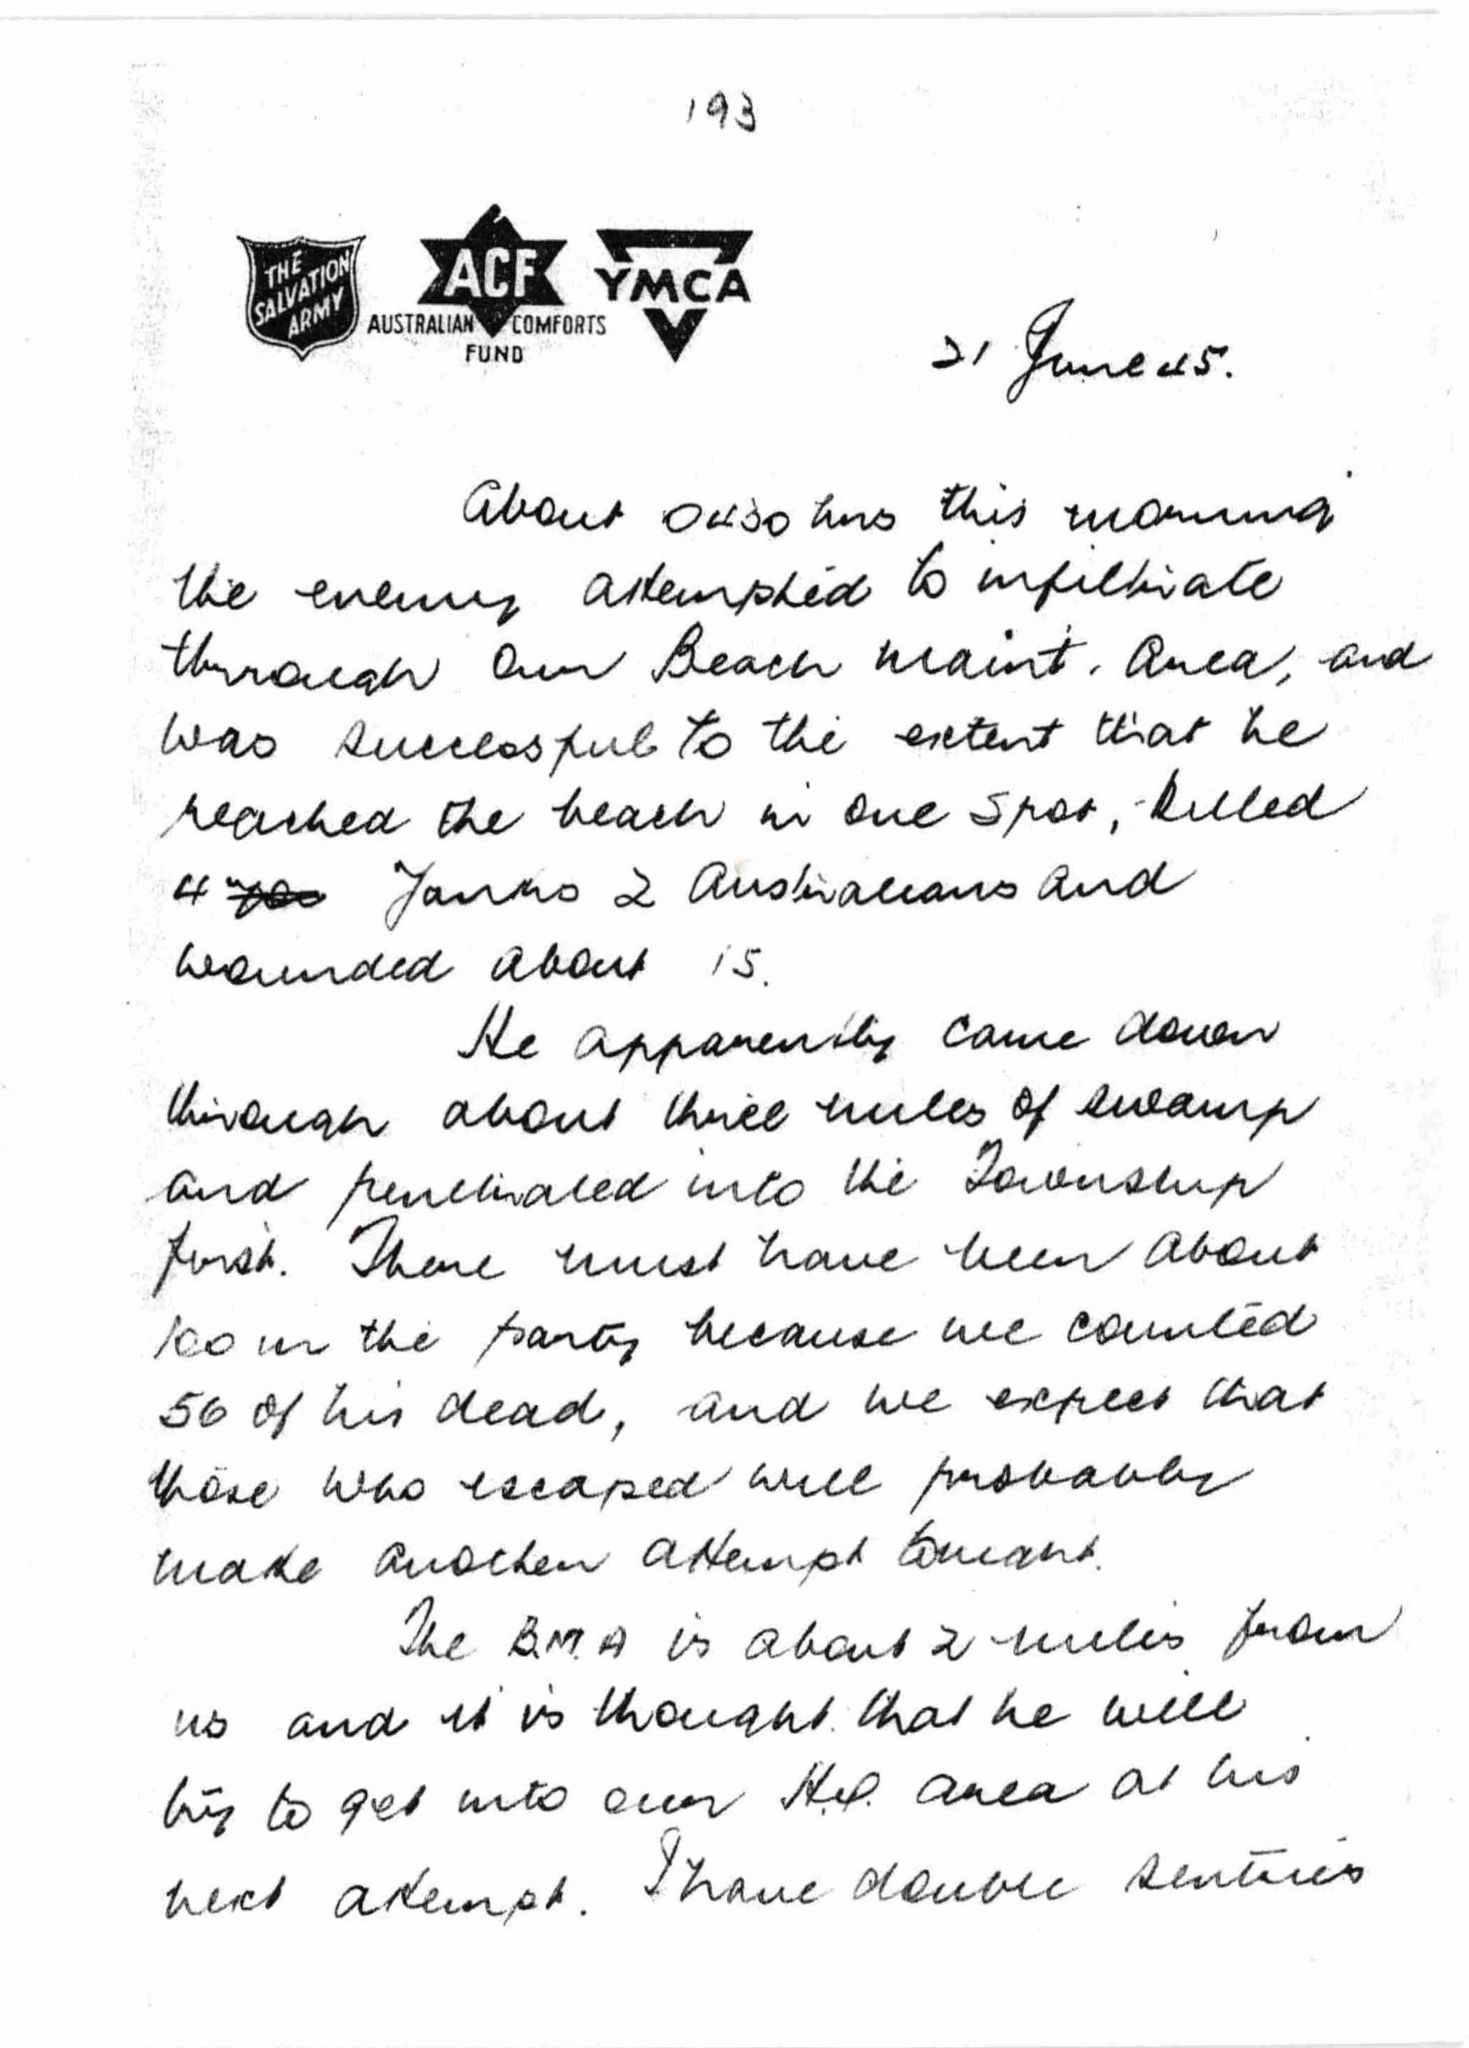 193
THE
SALVATION
ARMY
ACF
AUSTRALIAN COMFORTS
FUND
YMCA
21 June 45.
About 0430 hrs this morning
the enemy attempted to infiltrate
through our Beach Maint. Area, and
was successful to the extent that he
reached the beach in one spot, killed
4 Yanks 2 Australians and
wounded about 15.
He apparently came down
through about three miles of swamp
and penetrated into the Township
first. There must have been about
100 in the party because we counted
56 of his dead, and we expect that
those who escaped will probably
make another attempt tonight.
The B.M.A is about 2 miles from
us and it is thought that he will
try to get into our H.Q. area at his
next attempt. I have double sentries